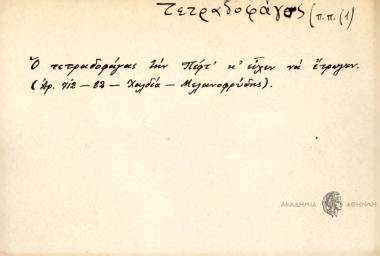 Τετραδοφάγας (π.π. (1)
Ὁ τετραδοφάγας τὴν Πέφτ' κ' εἶχεν νὰ ἔτρωγεν.
(Ἀρ. 712 – 83 – Χαλδία – Μελανοφρύδης).
ΑΚΑΔΗΜΙΑ ΑΘΗΝΩΝ